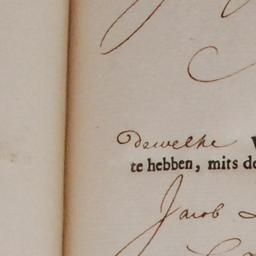 Dewelke
te hebben, mits de
Jacob